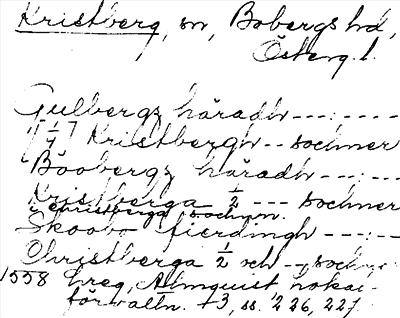 Kristberg, sn, Bobergs hd,
Österg. l.
Gulbergz häradh ---:---
[¼] Kristbergh -- sochner
Boobergz häradh ---:---
Kristberga ½ --- sochner
i Christberga sochnn.
Skoobo fierdingh ---:--
Christberga ½ och --- sochner
1558 hreg, Almquist lokal-
förvaltn. +3, ss. 226, 227.